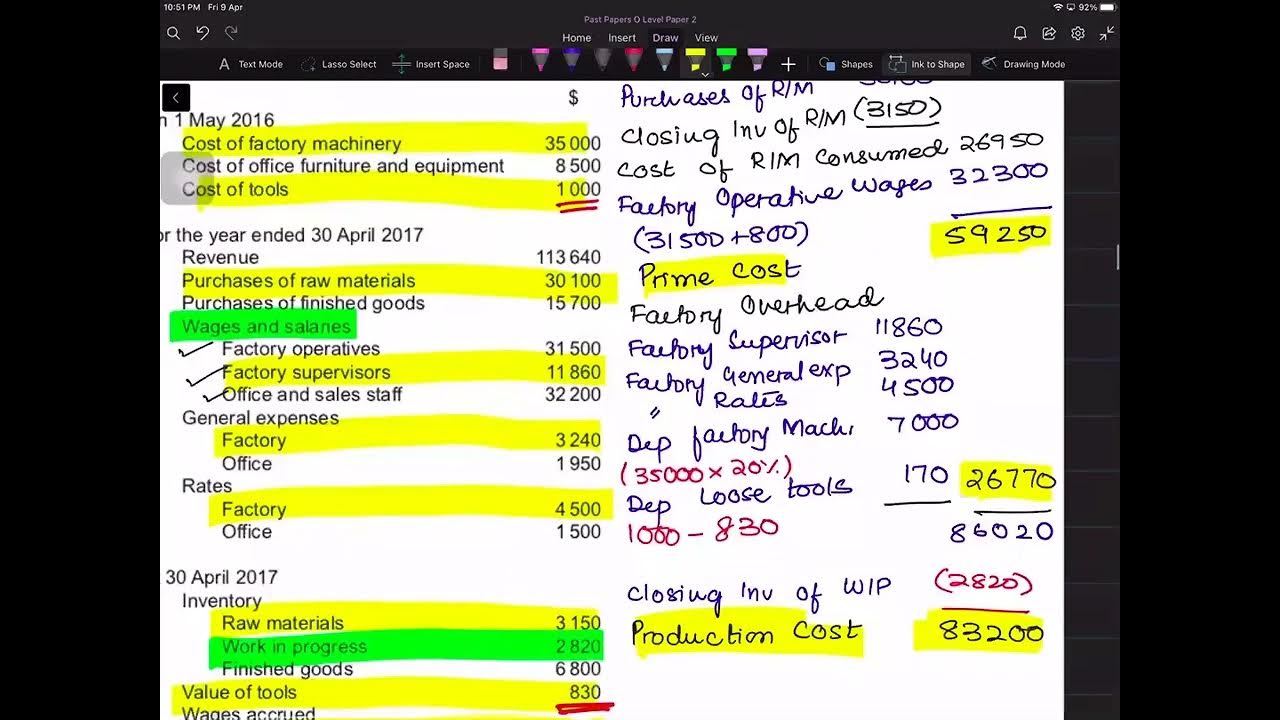 10:51 PM Fri 9 Apr
92%
Past Papers O Level Paper 2
Home Insert Draw View
Text Mode Lasso Select Insert Space Shapes Ink to Shape Drawing Mode
$
n 1 May 2016
Cost of factory machinery 35 000
Cost of office furniture and equipment 8 500
Cost of tools 1 000
or the year ended 30 April 2017
Revenue 113 640
Purchases of raw materials 30 100
Purchases of finished goods 15 700
Wages and salaries
Factory operatives 31 500
Factory supervisors 11 860
Office and sales staff 32 200
General expenses
Factory 3 240
Office 1 950
Rates
Factory 4 500
Office 1 500
30 April 2017
Inventory
Raw materials 3 150
Work in progress 2 820
Finished goods 6 800
Value of tools 830
Wages accrued
Purchases of R/M
Closing Inv of R/M (3150)
Cost of R/M Consumed 26950
Factory Operative Wages 32300
(31500+800) 59250
Prime Cost
Factory Overhead
Factory Supervisor 11860
Factory General exp 3240
" Rates 4500
Dep factory Mach. 7000
(35000 x 20%)
Dep Loose tools 170 26770
1000 - 830 86020
Closing Inv of WIP (2820)
Production Cost 83200